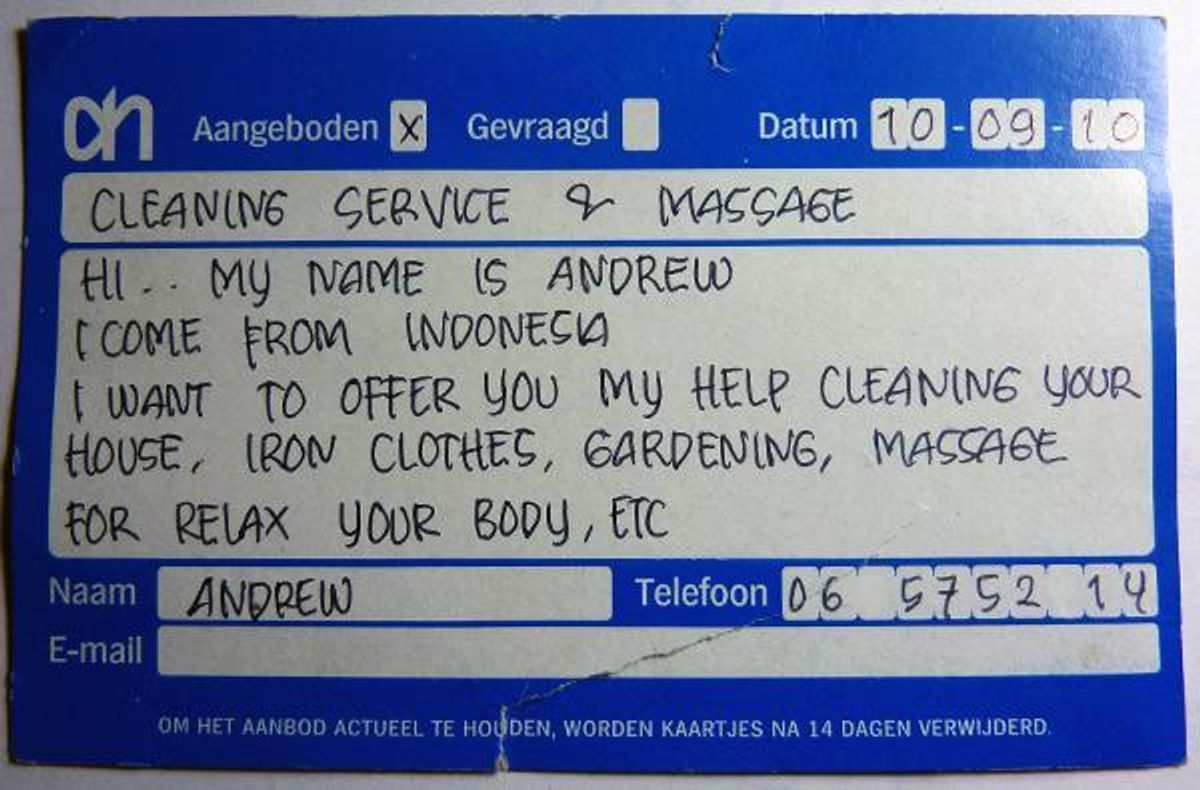 ah Aangeboden X Gevraagd Datum 10-09-10
CLEANING SERVICE & MASSAGE
HI.. MY NAME IS ANDREW
I COME FROM INDONESIA
I WANT TO OFFER YOU MY HELP CLEANING YOUR
HOUSE, IRON CLOTHES, GARDENING, MASSAGE
FOR RELAX YOUR BODY, ETC
Naam ANDREW Telefoon 06 5752 14
E-mail
OM HET AANBOD ACTUEEL TE HOUDEN, WORDEN KAARTJES NA 14 DAGEN VERWIJDERD.